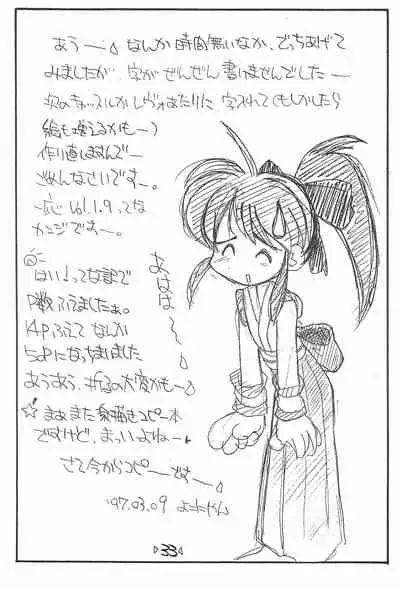 あうー なんか時間無いなか、でっちあげて
みましたが、字がぜんぜん書けませんでしたー
次のキャッスルかレヴォあたりに字入れてくもしかしたら
絵も増えるかもー)
作り直しますんでー
ごめんなさいですー。
一応Vol.1.9ってな
カンジですー。
はい!ってな訳で
P数ふえましたぁ。
14Pふえてなんか
50Pになっちまいました
あうあう、折るの大変かもー
まぁまた鉛筆描きコピー本
ですけど、まっいいよねー
さて今からコピーですー
'97.03.09 よこにゃん
あははー
33